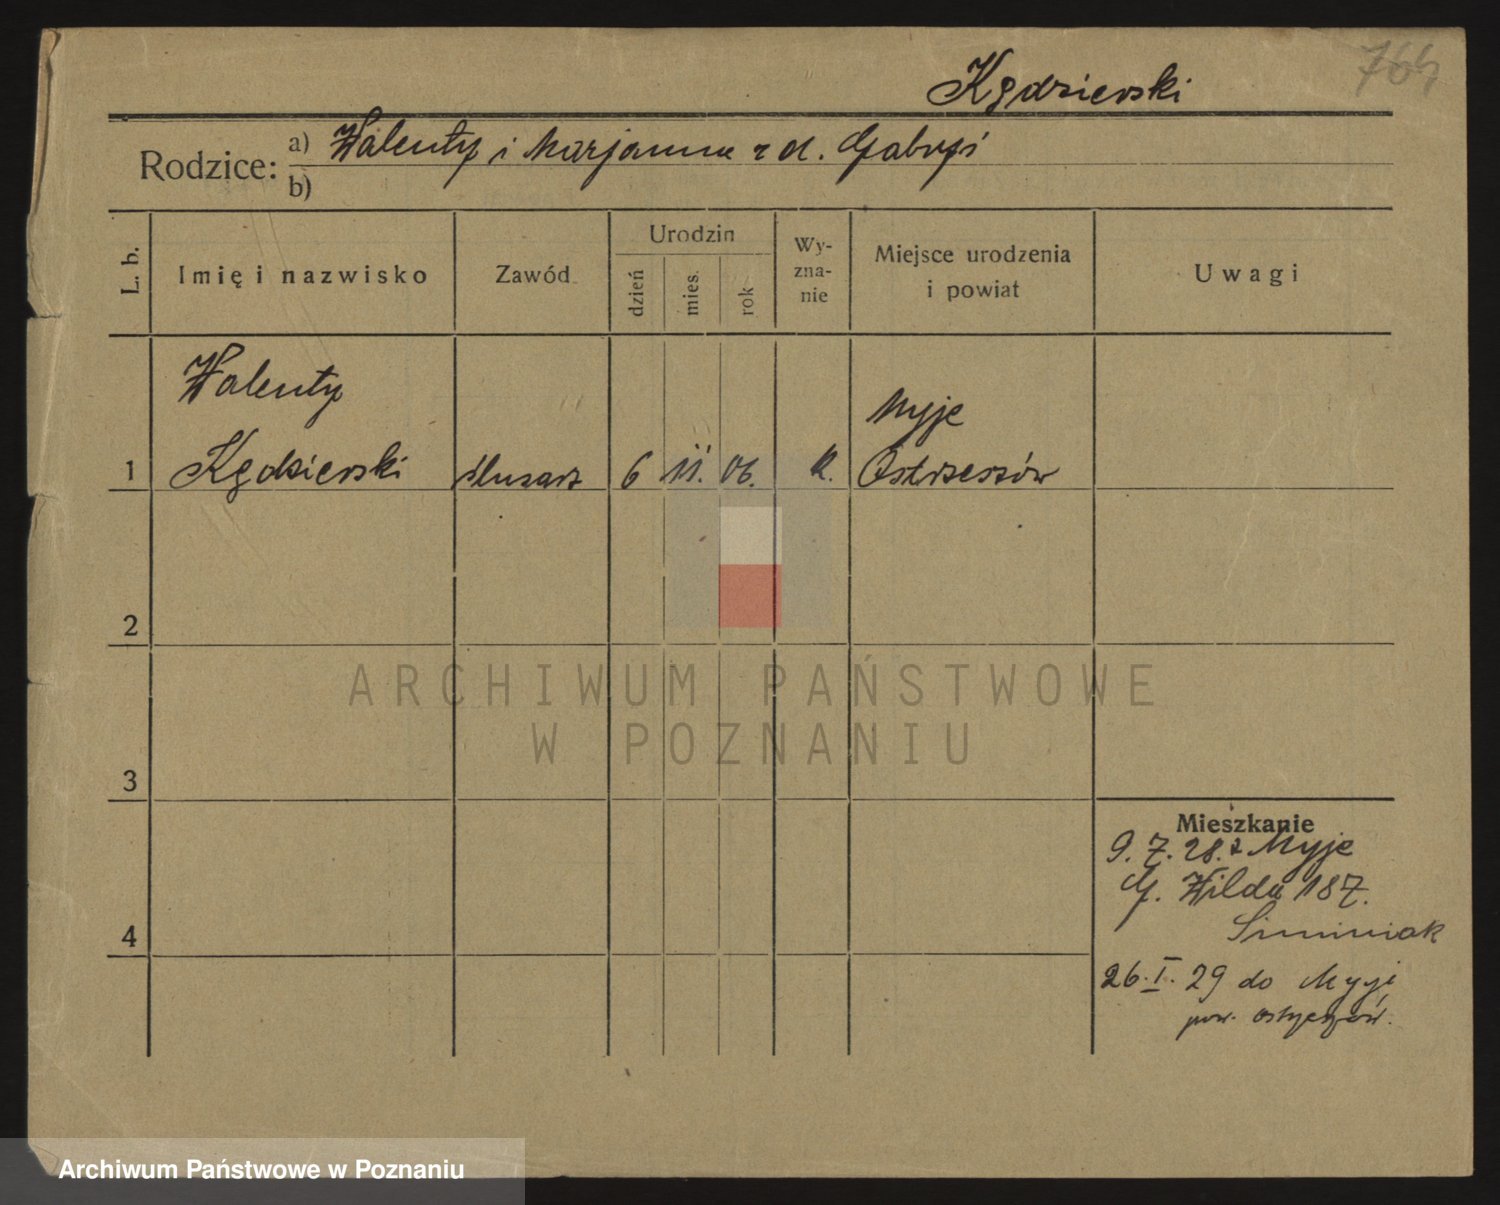 764
Kędzierski
Rodzice: a) Walenty i Marjanna z d. Gabryś
b)
L. b. Imię i nazwisko Zawód Urodzin dzień mies. rok Wy-zna-nie Miejsce urodzenia i powiat Uwagi
Walenty Myje
1 Kędzierski ślusarz 6 11. 06. k. Ostrzeszów
2
ARCHIWUM PAŃSTWOWE
W POZNANIU
3
Mieszkanie
9.7.28. z Myje
G. Wilda 187.
Siminiak
4
26.I.29 do Myji
pow. ostrzeszów.
Archiwum Państwowe w Poznaniu